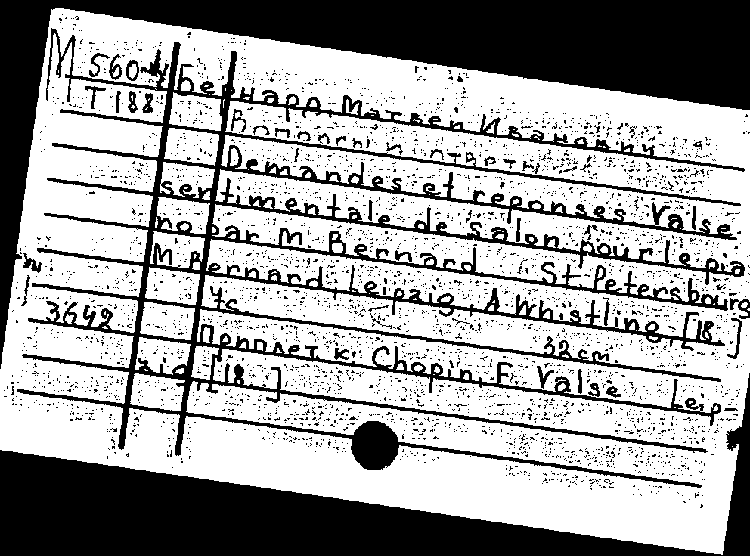 М 560-4
Т 188
Бернард, Матвей Иванович
Вопросы и ответы
Demandes et réponses Valse
sentimentale de salon pour le pia
no par M. Bernard St. Petersbourg
M. Bernard, Leipzig, A Whistling, [18..]
4с. 32 cm.
3642
Приплет к: Chopin, F. Valse Leip-
zig, [18..]